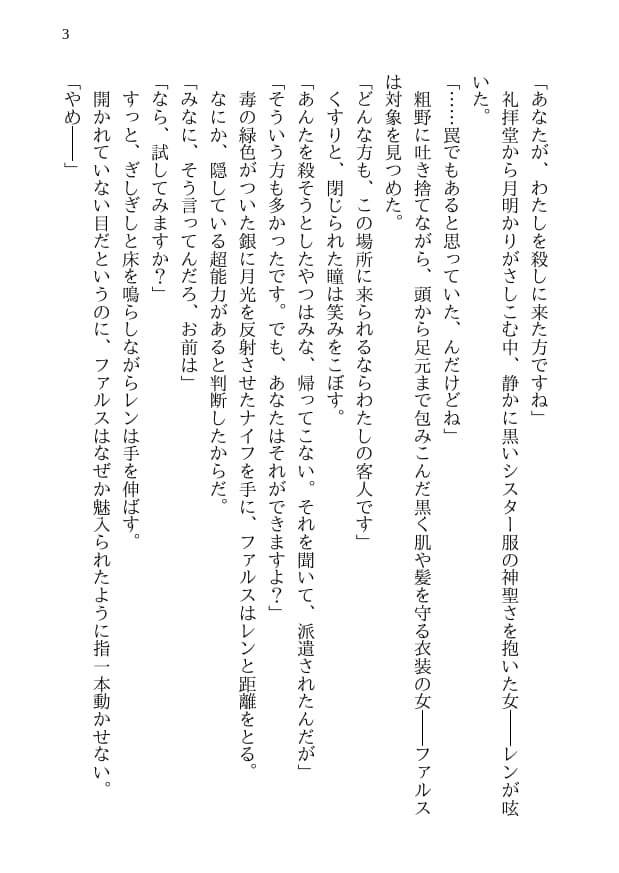 3
「あなたが、わたしを殺しに来た方ですね」
礼拝堂から月明かりがさしこむ中、静かに黒いシスター服の神聖さを抱いた女――レンが呟
いた。
「……罠でもあると思っていた、んだけどね」
粗野に吐き捨てながら、頭から足元まで包みこんだ黒く肌や髪を守る衣装の女――ファルス
は対象を見つめた。
「どんな方も、この場所に来られるならわたしの客人です」
くすりと、閉じられた瞳は笑みをこぼす。
「あんたを殺そうとしたやつはみな、帰ってこない。それを聞いて、派遣されたんだが」
「そういう方も多かったです。でも、あなたはそれができますよ？」
毒の緑色がついた銀に月光を反射させたナイフを手に、ファルスはレンと距離をとる。
なにか、隠している超能力があると判断したからだ。
「みなに、そう言ってんだろ、お前は」
「なら、試してみますか？」
すっと、ぎしぎしと床を鳴らしながらレンは手を伸ばす。
開かれていない目だというのに、ファルスはなぜか魅入られたように指一本動かせない。
「やめ――」